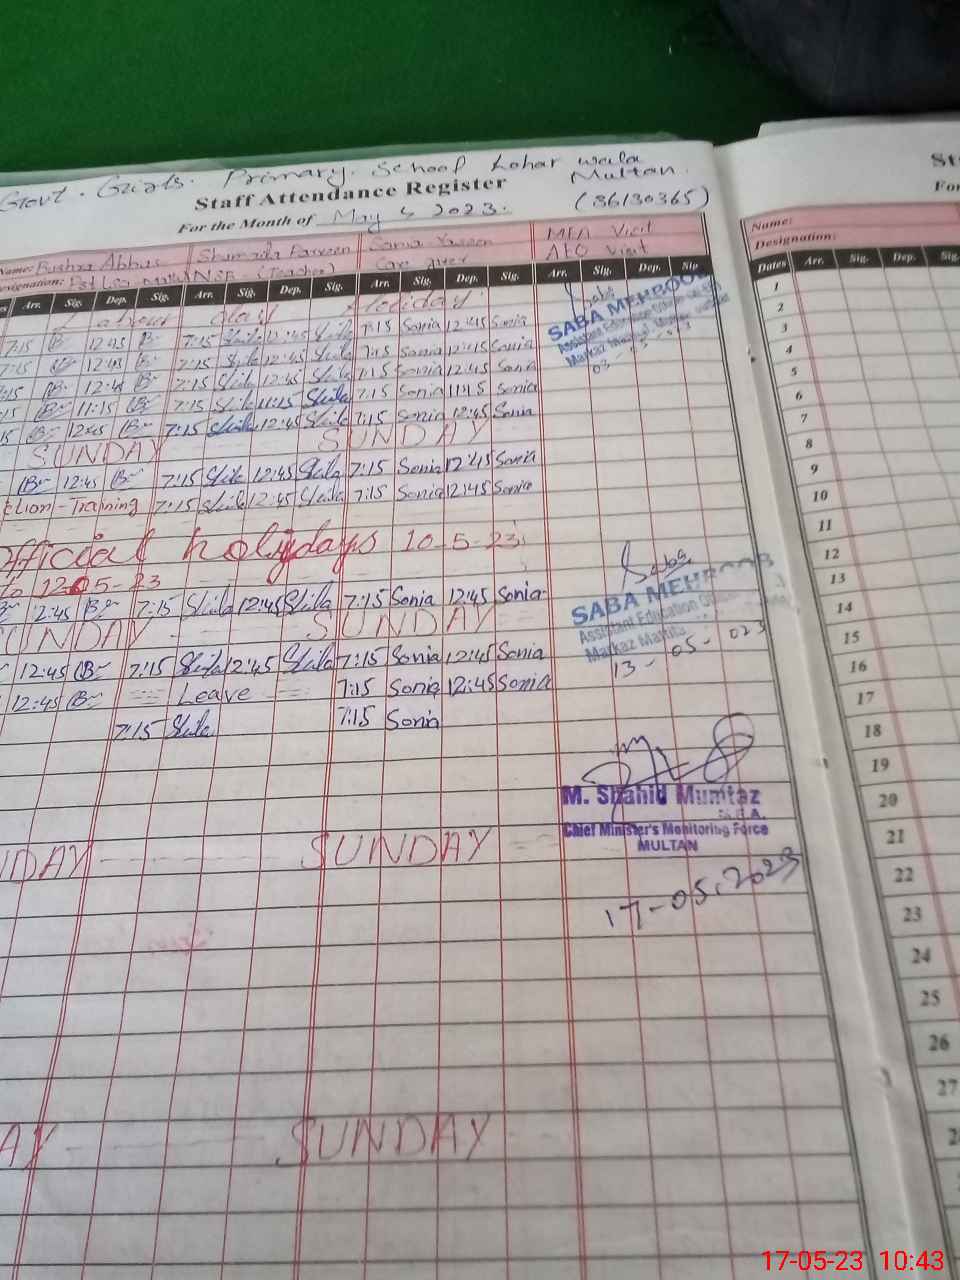 Govt. Girls. Primary. School Lohar wala
Multan.
Staff Attendance Register
(36130365)
For the Month of May 2023.
Name: Bushra Abbas Shumaila Parveen Sonia Yaseen MEA Visit
Designation: NSB (Teacher) Care giver AEO Visit
Arr. Sig. Dep. Sig. Arr. Sig. Dep. Sig. Arr. Sig. Dep. Sig. Arr. Sig. Dep. Sig.
Labour day Holiday
7:15 12:45 7:15 12:45 7:15 Sonia 12:45 Sonia
7:15 12:45 7:15 12:45 7:15 Sonia 12:45 Sonia
:15 12:45 7:15 12:45 7:15 Sonia 12:45 Sonia
15 11:15 7:15 11:15 7:15 Sonia 11:15 Sonia
15 12:45 7:15 12:45 7:15 Sonia 12:45 Sonia
SUNDAY SUNDAY
12:45 7:15 12:45 7:15 Sonia 12:45 Sonia
ction-Training 7:15 12:45 7:15 Sonia 12:45 Sonia
official holydays 10-5-23
to 12-05-23
2:45 7:15 12:45 7:15 Sonia 12:45 Sonia
SUNDAY SUNDAY
12:45 7:15 12:45 7:15 Sonia 12:45 Sonia
12:45 Leave 7:15 Sonia 12:45 Sonia
7:15 7:15 Sonia
NDAY SUNDAY
AY SUNDAY
Saba
SABA MEHBOOB
Assistant Education Officer
Markaz
03-05-23
Saba
SABA MEHBOOB
Assistant Education Officer
Markaz
13-05-023
M. Shahid Mumtaz
M.E.A.
Chief Minister's Monitoring Force
MULTAN
17-05.2023
St
For
Name:
Designation:
Dates Arr. Sig. Dep. Sig.
1
2
3
4
5
6
7
8
9
10
11
12
13
14
15
16
17
18
19
20
21
22
23
24
25
26
27
17-05-23 10:43